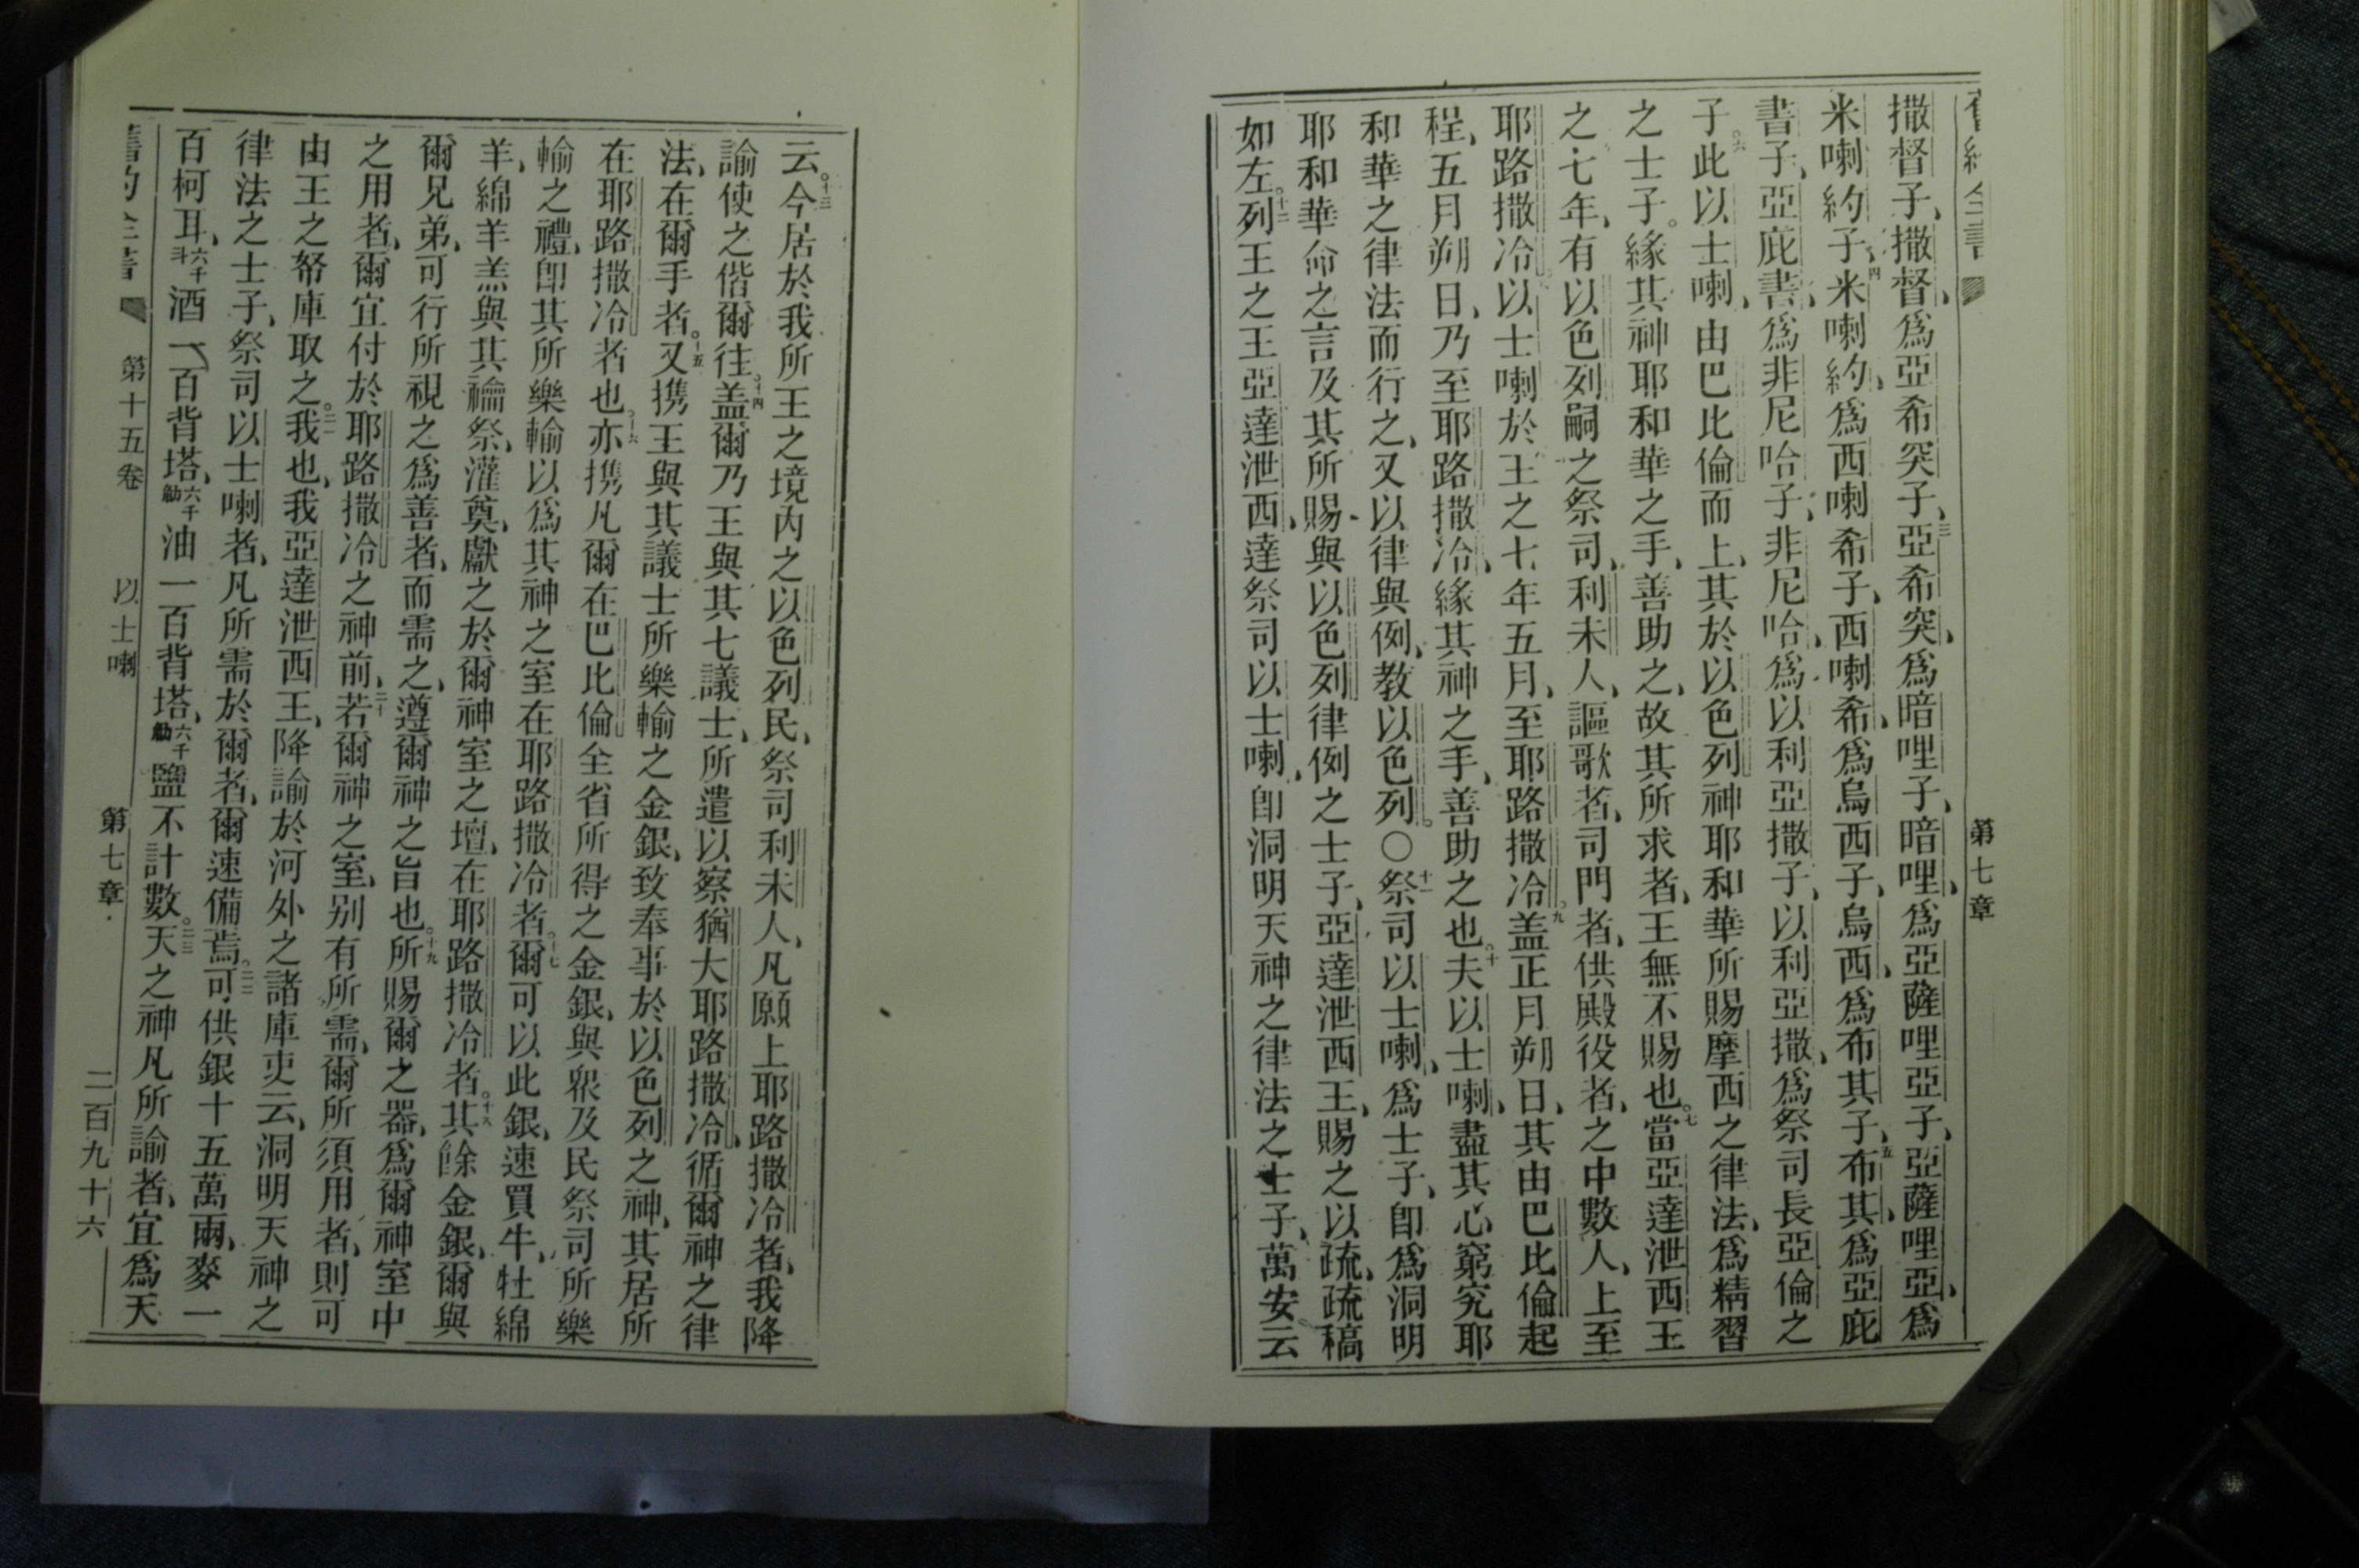 第七章
撒督子、撒督、爲亞希突子、三亞希突、爲暗哩子、暗哩、爲亞薩哩亞子、亞薩哩亞、爲
米喇約子、四米喇約、爲西喇希子、西喇希、爲烏西子、烏西、爲布其子、五布其、爲亞庇
書子、亞庇書、爲非尼哈子、非尼哈、爲以利亞撒子、以利亞撒、爲祭司長亞倫之
子。六此以士喇、由巴比倫而上、其於以色列神耶和華所賜摩西之律法、爲精習
之士子。緣其神耶和華之手、善助之、故其所求者、王無不賜也。七當亞達泄西王
之七年、有以色列嗣之祭司、利未人、謳歌者、司門者、供殿役者、之中數人、上至
耶路撒冷、以士喇於王之七年五月、至耶路撒冷。九盖正月朔日、其由巴比倫起
程、五月朔日、乃至耶路撒冷、緣其神之手、善助之也。十夫以士喇、盡其心窮究耶
和華之律法而行之、又以律與例、教以色列。〇十一祭司以士喇、爲士子、卽爲洞明
耶和華命之言及其所賜與以色列律例之士子、亞達泄西王、賜之以疏、疏稿
如左。十二列王之王亞達泄西、達祭司以士喇、卽洞明天神之律法之士子、萬安云
云。十三今居於我所王之境內之以色列民、祭司利未人、凡願上耶路撒冷者、我降
諭使之偕爾往。十四盖爾乃王與其七議士、所遣以察猶大耶路撒冷、循爾神之律
法、在爾手者。十五又携王與其議士所樂輸之金銀、致奉事於以色列之神、其居所
在耶路撒冷者也。十六亦携凡爾在巴比倫全省所得之金銀、與眾及民祭司所樂
輸之禮、卽其所樂輸以爲其神之室在耶路撒冷者。十七爾可以此銀、速買牛、牡綿
羊、綿羊羔與其禴祭、灌奠、獻之於爾神室之壇、在耶路撒冷者。十八其餘金銀、爾與
爾兄弟、可行所視之爲善者、而需之、遵爾神之旨也。十九所賜爾之器、爲爾神室中
之用者、爾宜付於耶路撒冷之神前、二十若爾神之室、别有所需、爾所須用者、則可
由王之帑庫取之。二一我也、我亞達泄西王、降諭於河外之諸庫吏云、洞明天神之
律法之士子、祭司以士喇者、凡所需於爾者、爾速備焉。二二可供銀十五萬兩、麥一
百柯耳、六千斗酒一百背塔、六千觔油一百背塔、六千觔鹽不計數。二三天之神凡所諭者、宜爲天
第十五卷 以士喇 第七章 二百九十六